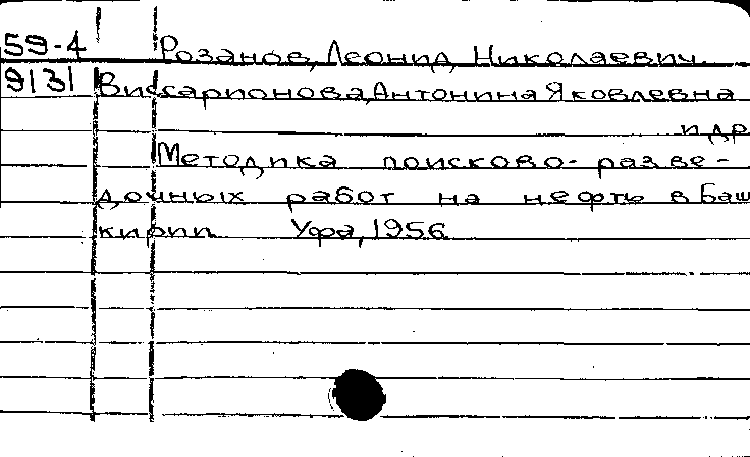 59-4 Розанов, Леонид Николаевич.
9131 Виссарионова, Антонина Яковлевна
и др
Методика поисково-разве-
дочных работ на нефть в Баш
кирии Уфа, 1956